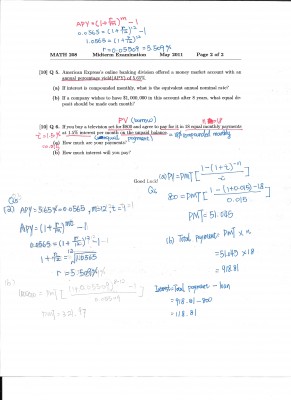 APY = (1 + r/m)^m - 1
0.0565 = (1 + r/12)^12 - 1
1.0565 = (1 + r/12)^12
r = 0.05509 = 5.509%
MATH 208 Midterm Examination May 2011 Page 2 of 2
[10] Q 5. American Express's online banking division offered a money market account with an
annual percentage yield(APY) of 5.65%.
(a) If interest is compounded monthly, what is the equivalent annual nominal rate?
(b) If a company wishes to have $1,000,000 in this account after 8 years, what equal de-
posit should be made each month?
PV (borrow)
[10] Q 6. If you buy a television set for $800 and agree to pay for it in 18 equal monthly payments
at 1.5% interest per month on the unpaid balance
(a) How much are your payments?
(b) How much interest will you pay?
Good Luck!
Q5
(a) APY = 5.65% = 0.0565, m = 12, t = 1
APY = (1 + r/m) - 1
0.0565 = (1 + r/12)^12 - 1
r = 5.509%
Q6
(a) PV = PMT [1 - (1 + i)^-n / i]
800 = PMT [1 - (1 + 0.015)^-18 / 0.015]
PMT = 51.045
(b) Total payment = PMT × n
= 51.045 × 18
= 918.81
Interest = Total payment - loan
= 918.81 - 800
= 118.81